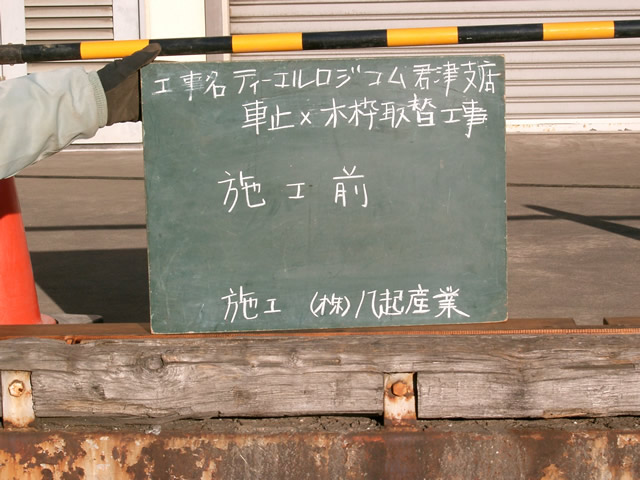 工事名 ティーエルロジコム君津支店
車止メ木枠取替工事
施工前
施工 (株)八起産業